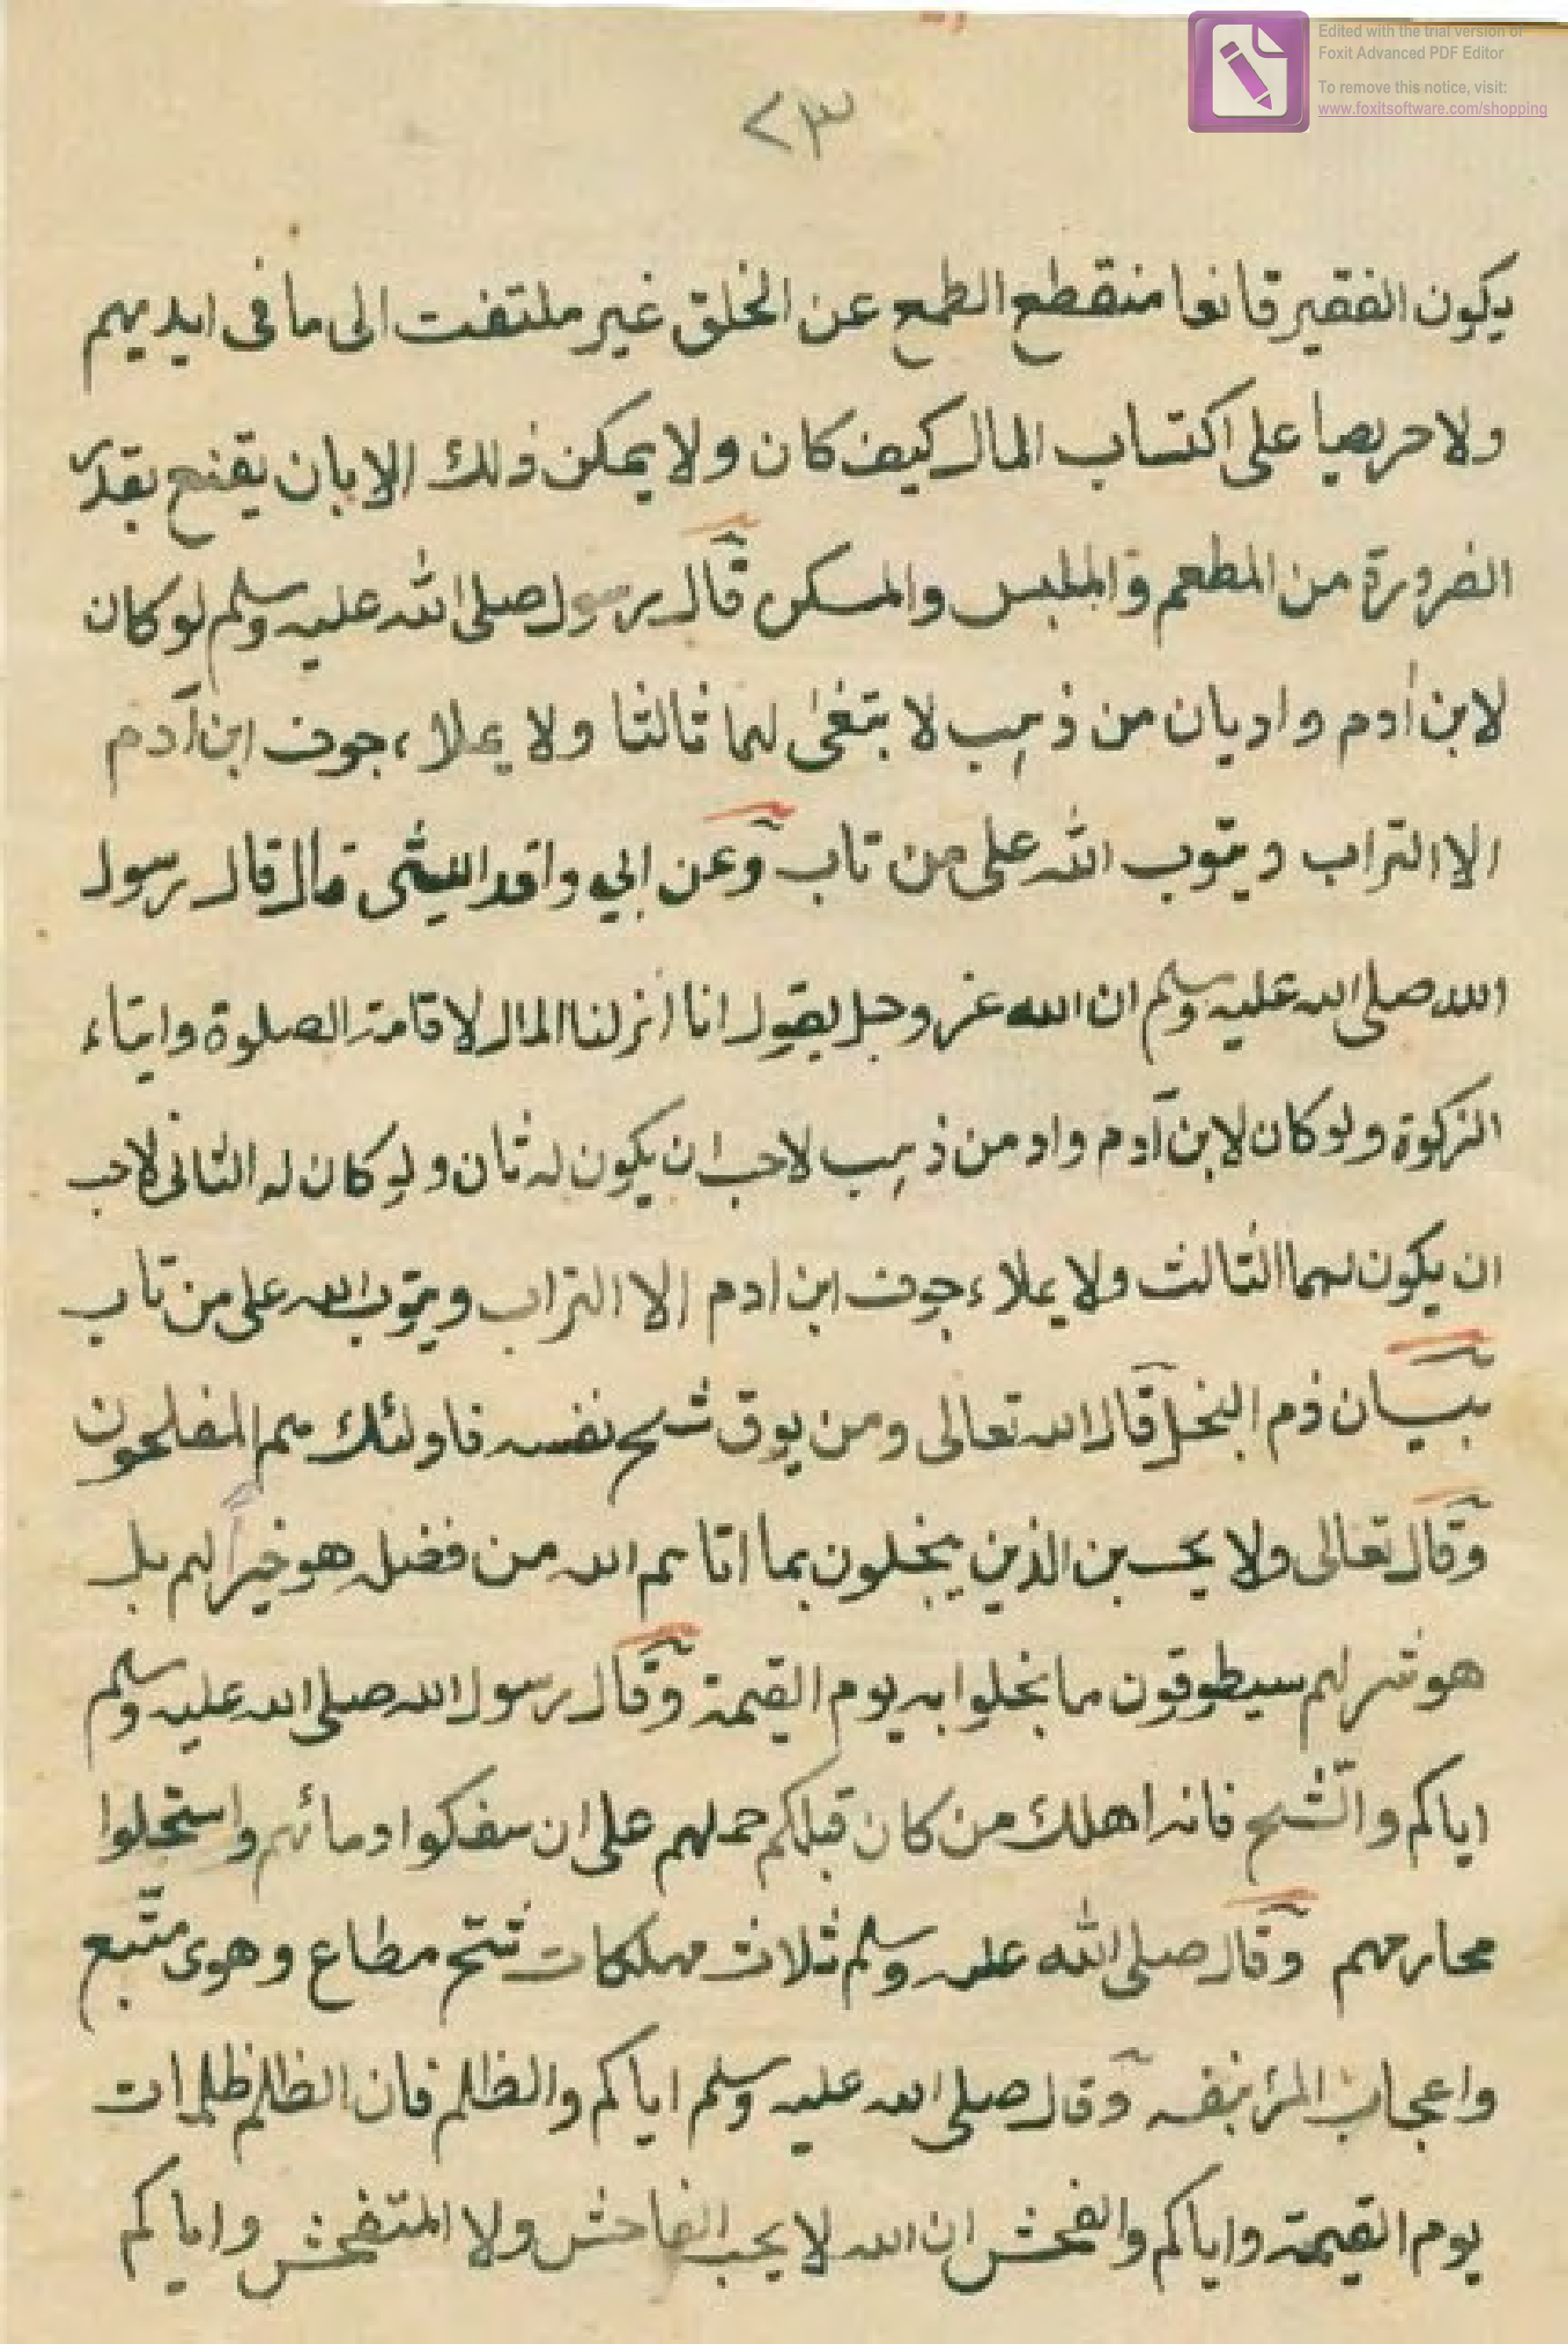 Edited with the trial version of
Foxit Advanced PDF Editor
To remove this notice, visit:
www.foxitsoftware.com/shopping
٢٣
يكون الفقير قانعا منقطع الطمع عن الخلق غير ملتفت الى ما فى ايديهم
ولا حريصا على اكتساب المال كيف كان ولا يمكن ذلك الا بان يقنع بقدر
الضرورة من المطعم والملبس والمسكن قال رسول صلى الله عليه وسلم لو كان
لابن أدم واديان من ذهب لا بتغى لهما ثالثا ولا يملاء جوف ابن آدم
الا التراب ويتوب الله على من تاب وعن ابي واقد الليثى قال قال رسول
الله صلى الله عليه وسلم ان الله عز وجل يقول انا انزلنا المال لاقامة الصلوة وايتاء
الزكوة ولو كان لابن آدم واد من ذهب لاحب ان يكون له ثان ولو كان له الثانى لاحب
ان يكون لهما الثالث ولا يملاء جوف ابن ادم الا التراب ويتوب الله على من تاب
بيان ذم البخل قال الله تعالى ومن يوق شح نفسه فاولئك هم المفلحون
وقال تعالى ولا يحسبن الذين يبخلون بما اتاهم الله من فضله هو خيراً لهم بل
هو شر لهم سيطوقون ما بخلوا به يوم القيمة وقال رسول الله صلى الله عليه وسلم
اياكم والشّح فانه اهلك من كان قبلكم حملهم على ان سفكوا دمائهم واستحلوا
محارمهم وقال صلى الله عليه وسلم ثلاث مهلكات شح مطاع وهوى متّبع
واعجاب المرء بنفسه وقال صلى الله عليه وسلم اياكم والظلم فان الظلم ظلمات
يوم القيمة واياكم والفحش ان الله لا يحب الفاحش ولا المتفحش واياكم